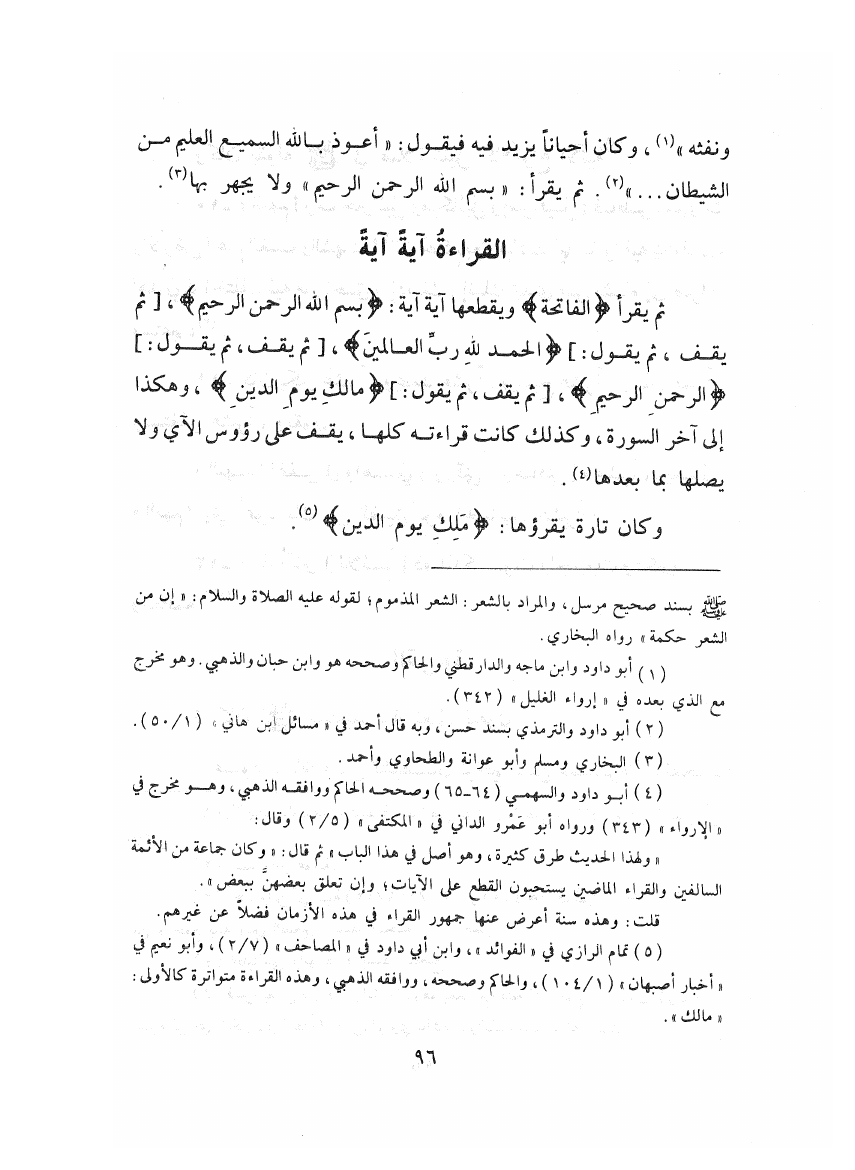 ونفثه »(١) ، وكان أحياناً يزيد فيه فيقول : « أعوذ بالله السميع العليم من
الشيطان ... »(٢) . ثم يقرأ : « بسم الله الرحمن الرحيم » ولا يجهر بها(٣) .
القراءةُ آيةً آيةً
ثم يقرأ ﴿الفاتحة﴾ ويقطعها آية آية : ﴿بسم الله الرحمن الرحيم﴾ ، [ ثم
يقف ، ثم يقول : ] ﴿الحمد للهِ ربِّ العالمينَ﴾ ، [ ثم يقف ، ثم يقول : ]
﴿الرحمنِ الرحيمِ﴾ ، [ ثم يقف ، ثم يقول : ] ﴿مالكِ يومِ الدينِ﴾ ، وهكذا
إلى آخر السورة ، وكذلك كانت قراءته كلها ، يقف على رؤوس الآي ولا
يصلها بما بعدها(٤) .
وكان تارة يقرؤها : ﴿مَلِكِ يوم الدين﴾(٥) .
ﷺ بسند صحيح مرسل ، والمراد بالشعر : الشعر المذموم ؛ لقوله عليه الصلاة والسلام : « إن من
الشعر حكمة » رواه البخاري .
(١) أبو داود وابن ماجه والدارقطني والحاكم وصححه هو وابن حبان والذهبي . وهو مخرج
مع الذي بعده في « إرواء الغليل » (٣٤٢) .
(٢) أبو داود والترمذي بسند حسن ، وبه قال أحمد في « مسائل ابن هاني » (٥٠/١) .
(٣) البخاري ومسلم وأبو عوانة والطحاوي وأحمد .
(٤) أبو داود والسهمي (٦٤-٦٥) وصححه الحاكم ووافقه الذهبي ، وهو مخرج في
« الإرواء » (٣٤٣) ورواه أبو عَمْرو الداني في « المكتفى » (٢/٥) وقال :
« ولهذا الحديث طرق كثيرة ، وهو أصل في هذا الباب » ثم قال : « وكان جماعة من الأئمة
السالفين والقراء الماضين يستحبون القطع على الآيات ؛ وإن تعلق بعضهنَّ ببعض » .
قلت : وهذه سنة أعرض عنها جمهور القراء في هذه الأزمان فضلاً عن غيرهم .
(٥) تمام الرازي في « الفوائد » ، وابن أبي داود في « المصاحف » (٢/٧) ، وأبو نعيم في
« أخبار أصبهان » (١٠٤/١) ، والحاكم وصححه ، ووافقه الذهبي ، وهذه القراءة متواترة كالأولى :
« مالك » .
٩٦